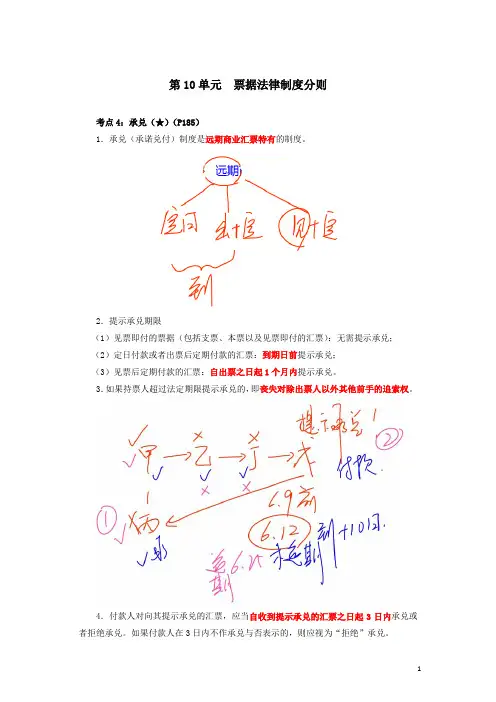 第10单元 票据法律制度分则
考点4：承兑（★）（P185）
1．承兑（承诺兑付）制度是远期商业汇票特有的制度。
远期
定日 出+定 见+定
到
2．提示承兑期限
（1）见票即付的票据（包括支票、本票以及见票即付的汇票）：无需提示承兑；
（2）定日付款或者出票后定期付款的汇票：到期日前提示承兑；
（3）见票后定期付款的汇票：自出票之日起1个月内提示承兑。
3.如果持票人超过法定期限提示承兑的，即丧失对除出票人以外其他前手的追索权。
提示承兑！
②
甲→乙→丁→戊
付款
①
1
丙
6.9前
6.12
到+10日
4．付款人对向其提示承兑的汇票，应当自收到提示承兑的汇票之日起3日内承兑或
者拒绝承兑。如果付款人在3日内不作承兑与否表示的，则应视为“拒绝”承兑。
1